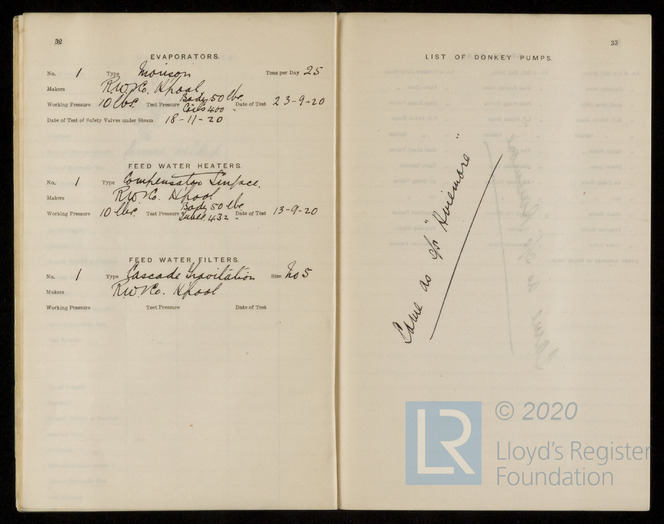 32
EVAPORATORS.
No. 1 Type Morison Tons per Day 25
Makers R.W. & Co. H'pool
Working Pressure 10 lbs. Test Pressure Body 50 lbs Coils 400 " Date of Test 23-9-20
Date of Test of Safety Valves under Steam 18-11-20
FEED WATER HEATERS.
No. 1 Type Compensator Surface.
Makers R.W. & Co. H'pool
Working Pressure 10 lbs. Test Pressure Body 50 lbs Tubes 432 " Date of Test 13-9-20
FEED WATER FILTERS.
No. 1 Type Cascade Gravitation Size No 5
Makers R.W. & Co. H'pool
Working Pressure Test Pressure Date of Test
33
LIST OF DONKEY PUMPS.
Same as s/s
© 2020
LR
Lloyd's Register
Foundation